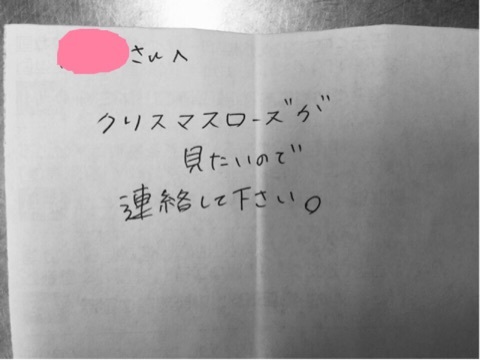 さんへ
クリスマスローズが
見たいので
連絡して下さい。